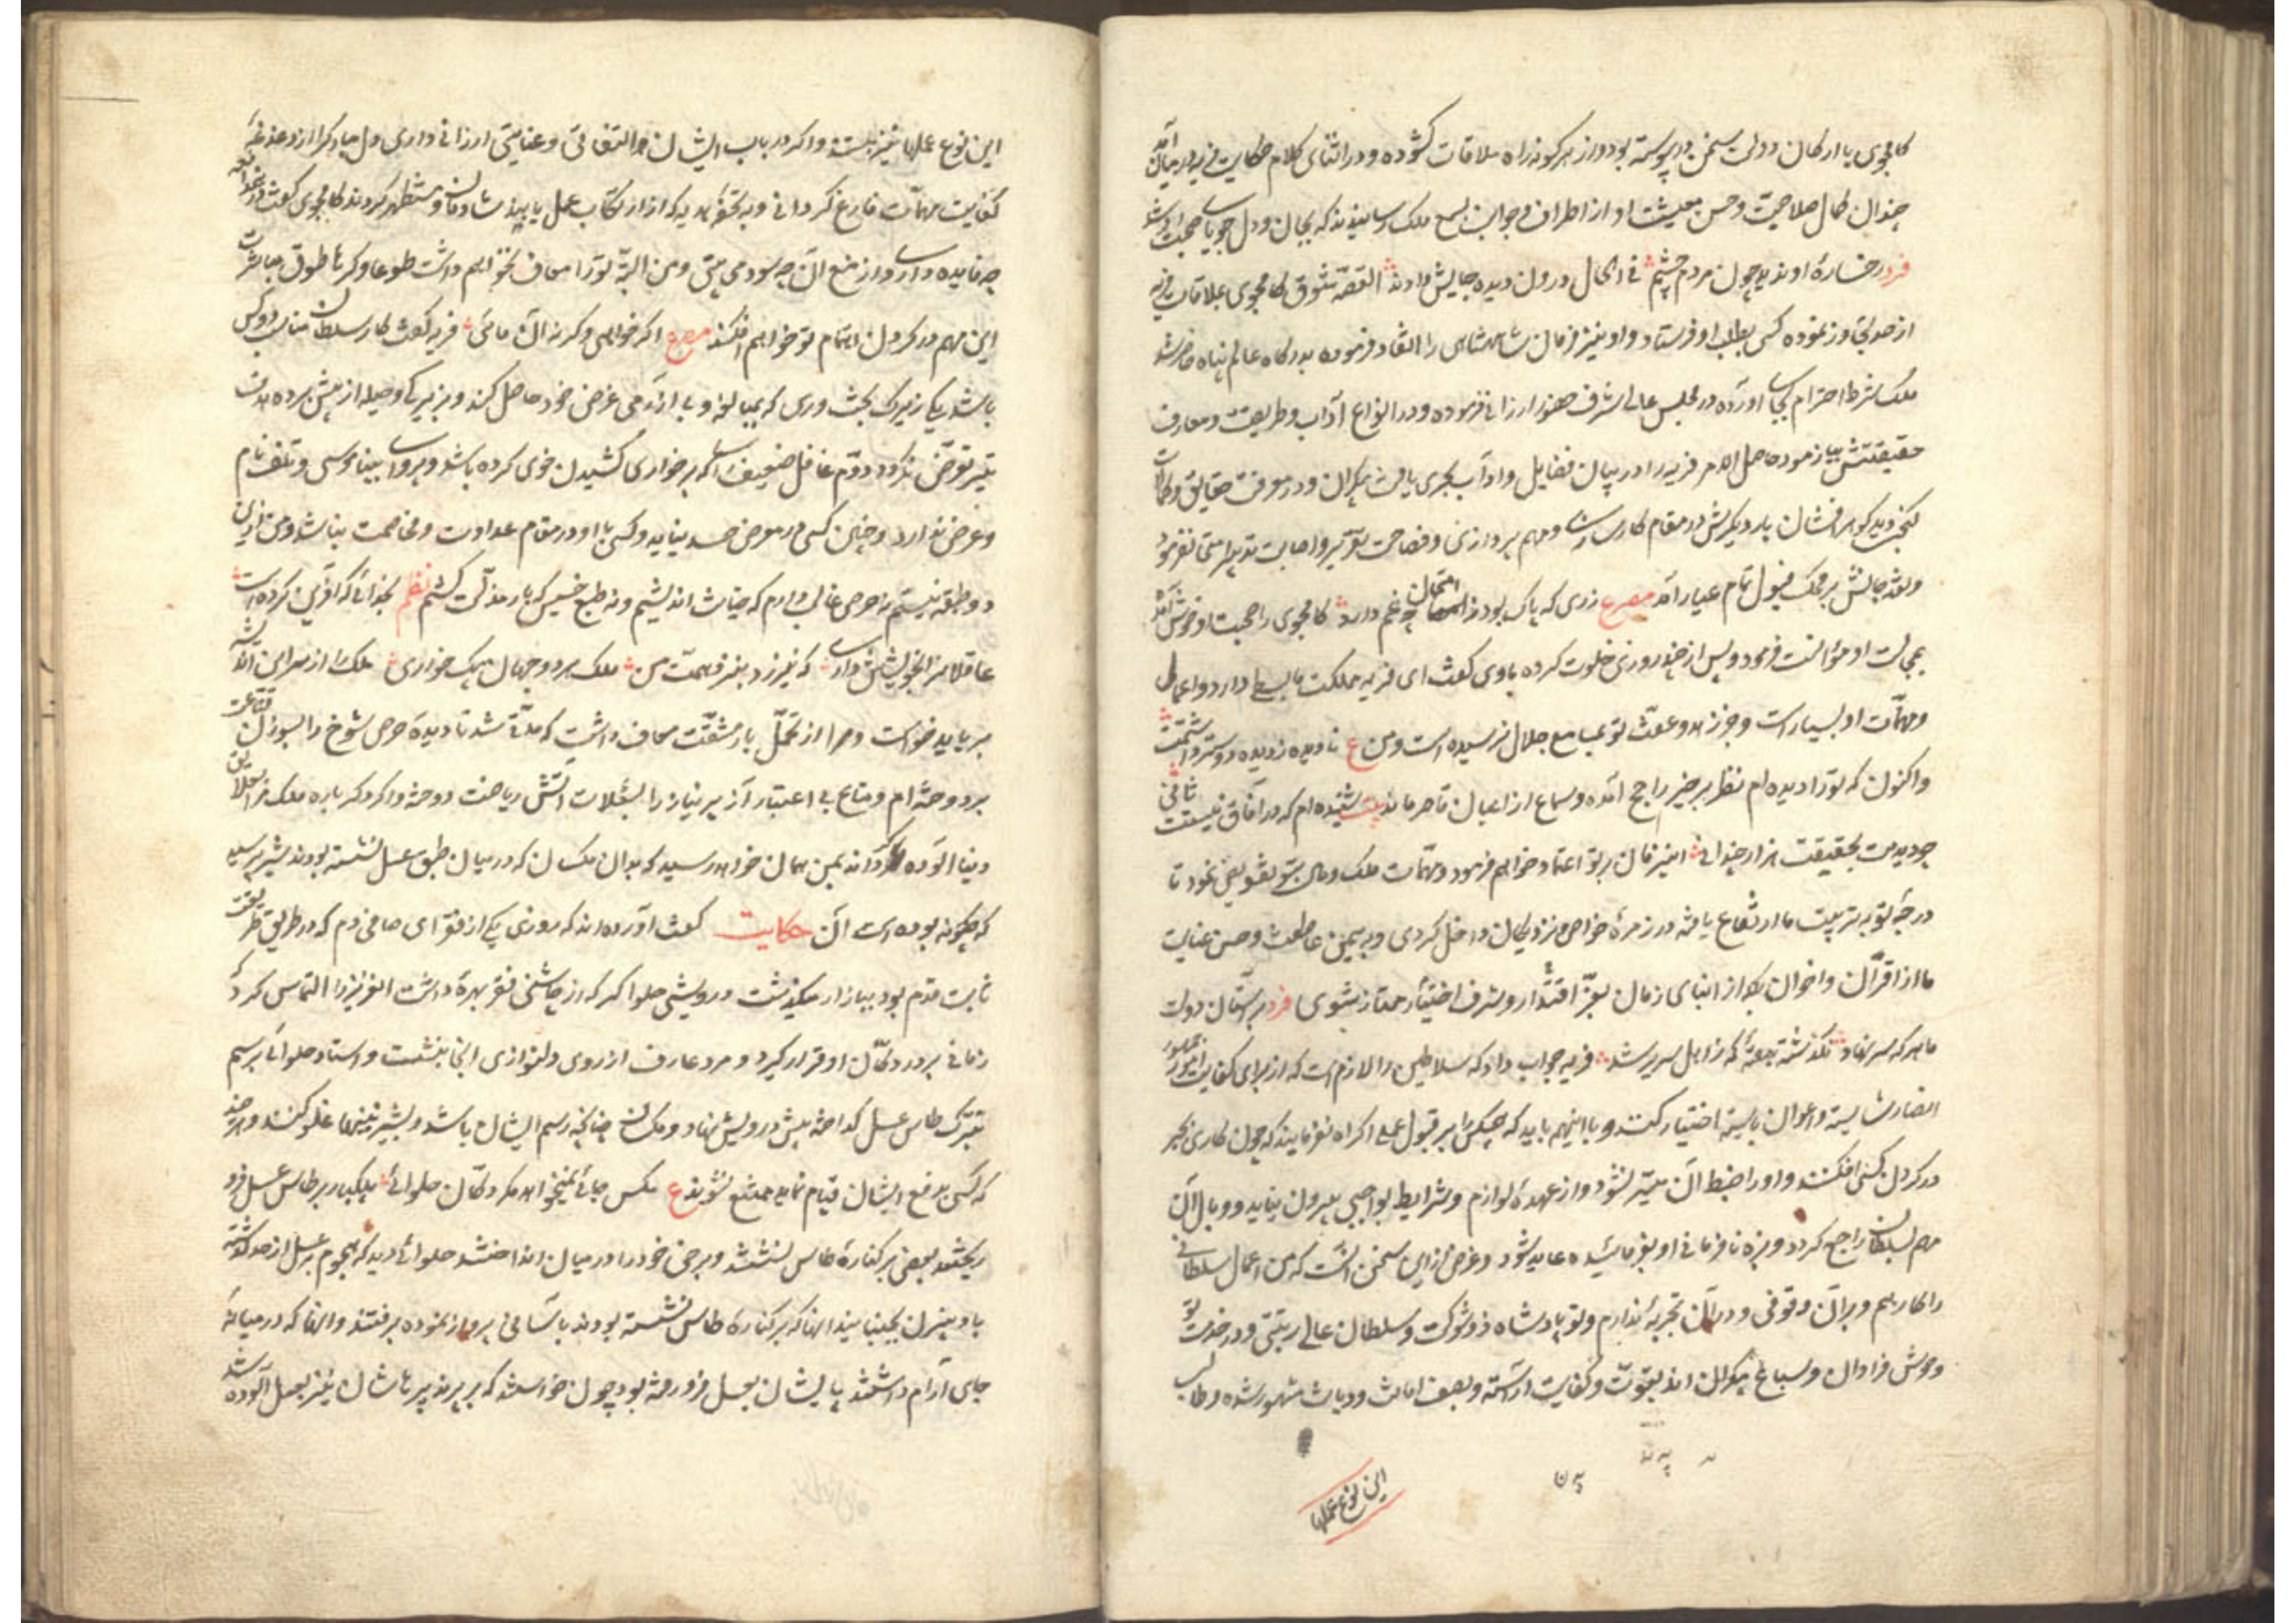 کامجوی با ارکان دولت سخن در پیوسته بود و از هر گونه راه ملاقات گشوده و در اثنای کلام حکایت فریه در میان آمد
چندان کمال صلاحیت و حسن معیشت او از اطراف و جوانب بسمع ملک رسانیدند که بجان و دل جویای صحبت او شد
فرد رخساره او ندیده چون مردم چشم فی الحال درون دیده جایش دادند القصه شوق کامجوی بملاقات فریه
از حد تجاوز نموده کس بطلب او فرستاد و او نیز فرمان شاهنشاهی را انقیاد فرموده بدرگاه عالم پناه حاضر شد
ملک شرط احترام بجای آورده در مجلس عالی شرف حضور ارزانی فرموده و در انواع آداب و طریقت و معارف
حقیقتش بیازموده حاصل الامر فریه را در بیان فضایل و آداب بحری یافت بیکران و در معرفت حقایق و کمالات
گنجی دید گوهر افشان بار دیگرش در مقام کارسازی و مهم پردازی و فصاحت تقریر و اصابت تدبیر امتحان فرمود
و نقد حالش بر محک قبول تمام عیار آمد مصرع زری که پاک بود از امتحان چه غم دارد کامجوی را صحبت او خوش آمده
بمجالست او مؤانست فرمود و پس از چند روزی خلوت کرده با وی گفت ای فریه مملکت ما بسطی دارد و اعمال
و مهمات او بسیار است و خبر زهد و عفت تو بمسامع جلال رسیده است و من ع نادیده ز دیده دوستر داشتمت
و اکنون که ترا دیده ام نظر بر خبر راجح آمده و سماع از اعیان قاصر مانده بیت شنیده ام که در آفاق نیستت ثانی
چو دیدمت بحقیقت هزار چندانی این زمان بر تو اعتماد خواهم فرمود و مهمات ملک و مال بتو تفویض نمود تا
درجه تو بتربیت ما ارتفاع یافته در زمره خواص و نزدیکان داخل گردی و بیمن عاطفت و حسن عنایت
ما از اقران و اخوان بلکه از ابنای زمان بعز اقتدار و شرف اختیار ممتاز شوی فرد بر آستان دولت
ما هر که سر نهاد نگذشته هفته که ز اهل سریر شد فریه جواب داد که سلاطین را لازم است که از برای کفایت امور جمهور
انصار شایسته و اعوان بایسته اختیار کنند و با اینهم باید که هیچکس را بر قبول عمل اکراه نفرمایند که چون کاری بجبر
در گردن کسی افکنند و او را ضبط آن میسر نشود و از عهده لوازم و شرایط بواجبی بیرون نیاید و وبال آن
مهم بسلطان راجع گردد و بزه نافرمانی او بفرماینده عاید شود و غرض از این سخن آنست که من اعمال سلطانی
را کارهم و بر آن وقوفی و در آن تجربه ندارم و تو پادشاه ذو شوکت و سلطان عالی رتبتی و در خدمت تو
وحوش فراوان و سباع بیکران اند بقوت و کفایت آراسته و بصفت امانت و دیانت مشهور شده و طالب
این نوع عملها
این نوع عملها نیز هستند و اگر در باب ایشان التفاتی و عنایتی ارزانی داری دل مبارک را از دغدغه
کفایت مهمات فارغ گردانی و بتحف و هدیه که از ارتکاب عمل یابند شادمان و مستظهر گردند کامجوی گفت در مدافعه
چه فایده داری و از منع آن چه سود می بینی و من البته ترا معاف نخواهم داشت طوعا و کرها طوق مباشرت
این مهم در گردن اهتمام تو خواهم افکند مصرع اگر خواهی و گر نه آن مائی فریه گفت کار سلطان مناسب دو کس
باشد یکی زیرک سخت روی که بمبالغه و بی آزرمی غرض خود حاصل کند و بزیرکی و حیله از پیش برده هدف
تیر تعرض نگردد دوم غافل ضعیف رای که بر خواری کشیدن خوی کرده باشد و پروای بیناموسی و تلف نام
و عرض ندارد و چنین کسی در معرض حسد نیاید و کسی با او در مقام عداوت و مخاصمت نباشد و من ازین
دو طبقه نیستم نه حرص غالب دارم که خیانت اندیشم و نه طبع خسیس که بار مذلت کشم نظم بخدائی که آفرین کرده است
عاقلانرا بخویشتن داری که نیرزد بنزد همت من ملک هر دو جهان بیک خواری ملک را از سر این اندیشه
بر باید خاست و مرا از تحمل بار مشقت معاف داشت که مدتی شد تا دیده حرص شوخ را بسوزن قناعت
بردوخته ام و متاع بی اعتبار آز پر نیاز را بشعلات آتش ریاضت سوخته و اگر دگر باره ملک مرا بعلایق
دنیا آلوده گرداند بمن همان خواهد رسید که بدان مگسان که در میان طبق عسل نشسته بودند شیر پرسید
که چگونه بوده است آن حکایت گفت آورده اند که روزی یکی از فقرای صافی دم که در طریق طریقت
ثابت قدم بود ببازار میگذشت درویشی حلواگر که از چاشنی فقر بهره داشت آن عزیز را التماس کرد که
زمانی بر در دکان او قرار گیرد و مرد عارف از روی دلنوازی آنجا بنشست و استاد حلوائی برسم
تبرک طاس عسل گداخته پیش درویش نهاد و مگسان چنانچه رسم ایشان باشد و بشیرینیها غلو کنند و هر چند
که کسی بدفع ایشان قیام نماید ممتنع نشوند ع مگس جائی نخواهد مگر دکان حلوائی بیکبار بر طاس عسل فرو
ریختند بعضی بر کناره طاس نشستند و برخی خود را در میان انداختند حلوائی دید که هجوم بر عسل از حد گذشته
بادبیزن بجنبانید آنها که بر کناره طاس نشسته بودند بآسانی پرواز نموده برفتند و آنها که در میانه
جای آرام داشتند پایشان بعسل فرو رفته بود چون خواستند که بپرند پرهاشان نیز بعسل آلوده شد